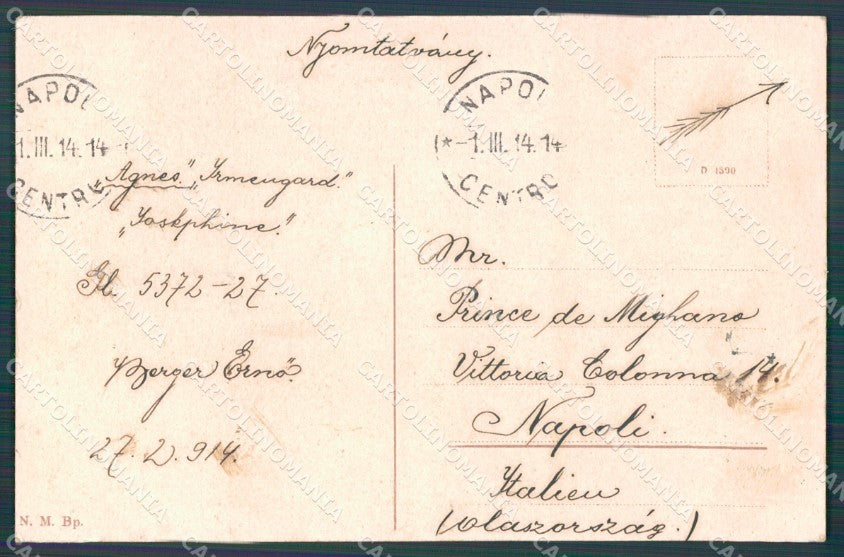 Nyomtatvány.
NAPOLI
1.III.14.14
CENTRO
NAPOLI
* -1.III.14.14
CENTRO
D 1590
"Agnes." "Irmengard."
"Joskphine."
Gl. 5372-27.
Berger Ernő.
27.2.914.
Mr.
Prince de Mighano
Vittoria Colonna 14.
Napoli.
Italien
(Olaszország.)
N. M. Bp.
CARTOLINOMANIA